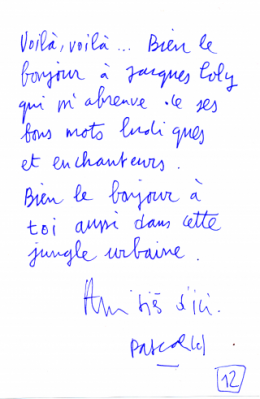 Voilà, voilà... Bien le
bonjour à Jacques Coly
qui m'abreuve de ses
bons mots ludiques
et enchanteurs.
Bien le bonjour à
toi aussi dans cette
jungle urbaine.
Amitiés d'ici.
Pascal
12